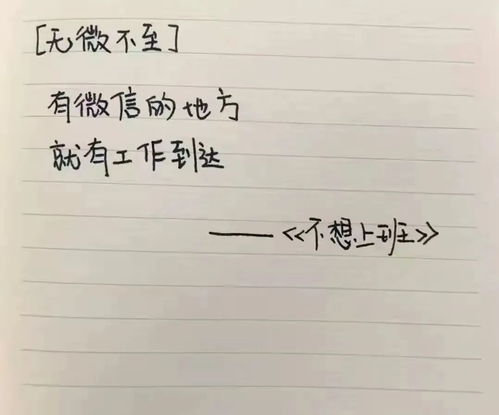 [无微不至]
有微信的地方
就有工作到达
——《不想上班》